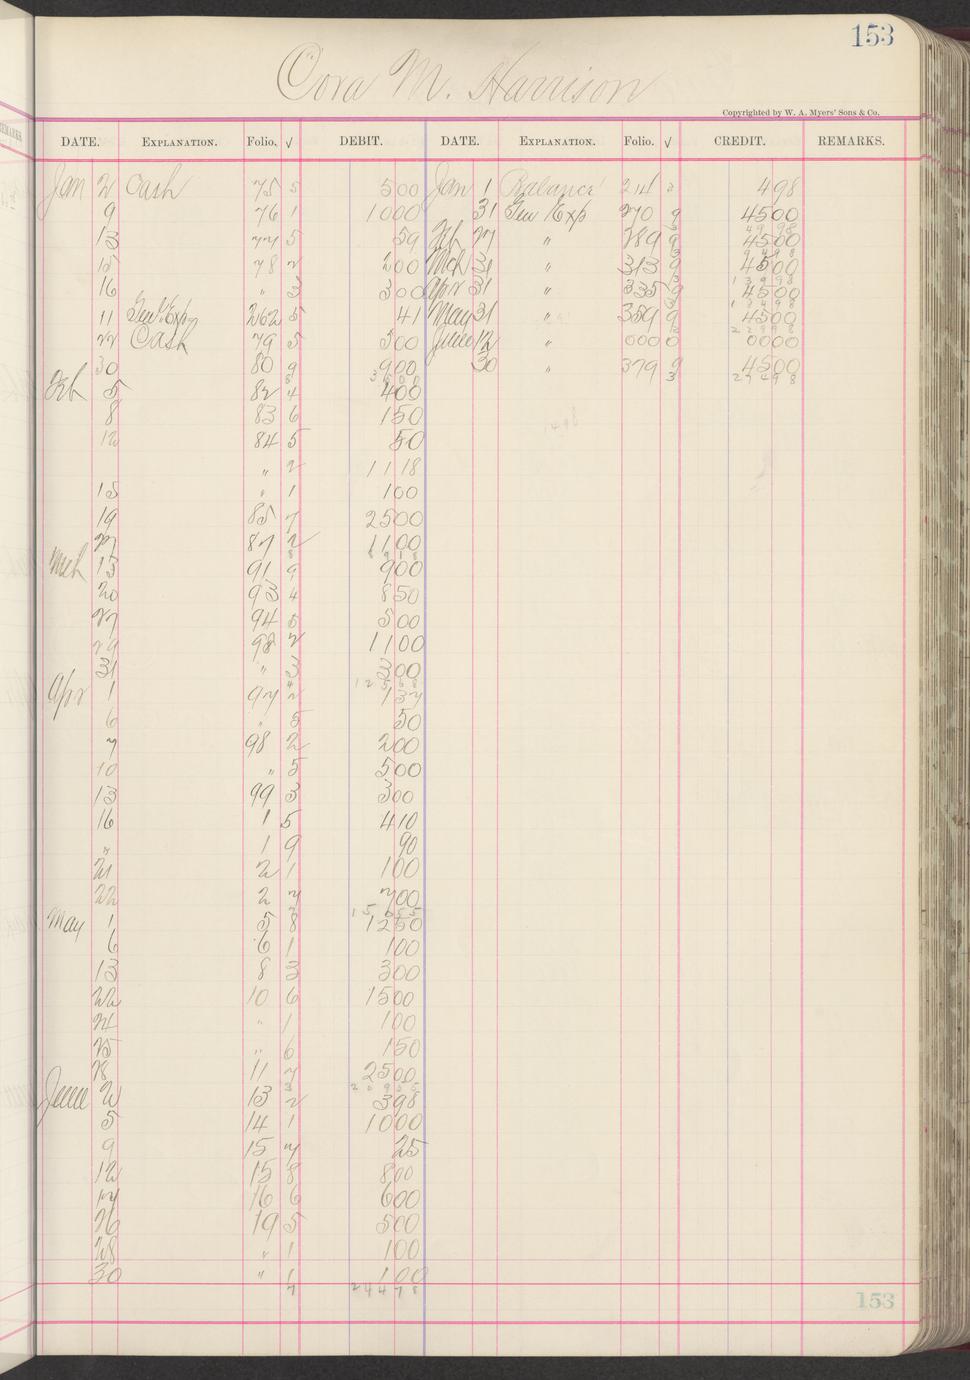 153
Cora M. Harrison
Copyrighted by W. A. Myers' Sons & Co.
DATE. EXPLANATION. Folio. √ DEBIT. DATE. EXPLANATION. Folio. √ CREDIT. REMARKS.
Jan 2 Cash 75 5 500 Jan 1 Balance 214 498
9 76 1 1000 31 Gen Exp 270 9 4500
49 98
13 77 5 59 Feb 27 " 289 9 4500
94 98
15 78 2 200 Mch 31 " 313 9 4500
139 98
16 " 3 300 Apr 31 " 335 9 4500
184 98
11 Gen'l Exp 262 5 41 May 31 " 359 9 4500
229 98
22 Cash 79 5 500 June 12 0000 0 0000
30 80 9 900 30 " 379 9 4500
3 274 98
Feb 5 82 4 400
8 83 6 150
12 84 5 50
" 2 1118
15 " 1 100
19 85 7 2500
27 87 2 1100
Mch 13 91 9 900
20 93 4 850
27 94 5 500
29 98 2 1100
31 " 3 300
Apr 1 97 2 137
6 " 5 50
7 98 2 200
10 " 5 500
13 99 3 300
16 1 5 410
" 1 9 90
21 2 1 100
22 2 7 700
May 1 5 8 1250
6 6 1 100
13 8 3 300
22 10 6 1500
24 " 1 100
25 " 6 150
28 11 7 2500
June 2 13 2 398
5 14 1 1000
9 15 7 25
12 15 8 800
17 16 6 600
26 19 5 500
28 " 1 100
30 " 1 100
7 244 78
153